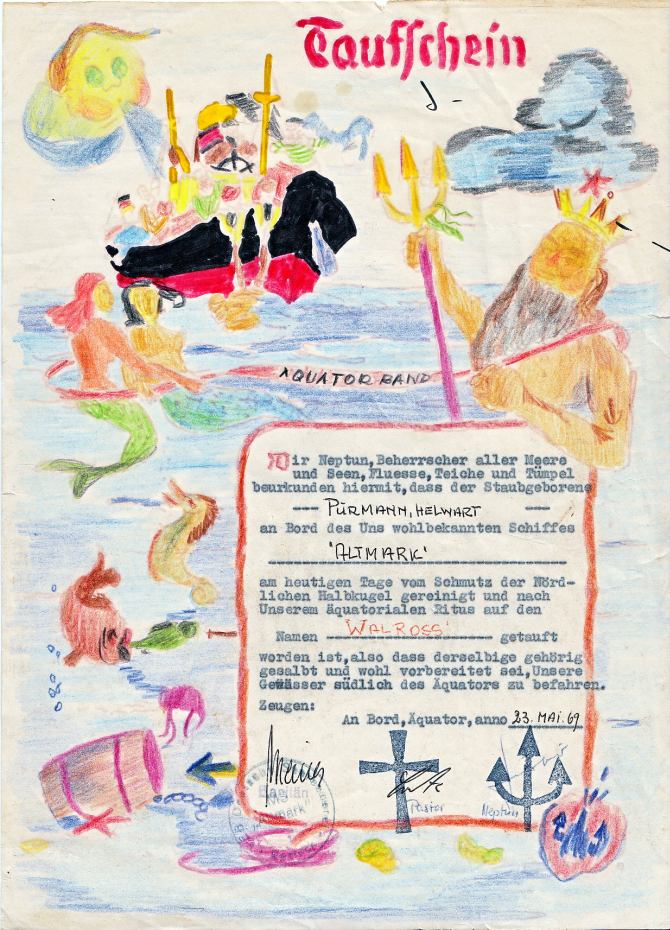 Taufschein
ÄQUATOR BAND
Wir Neptun,Beherrscher aller Meere
und Seen,Fluesse,Teiche und Tümpel
beurkunden hiermit,dass der Staubgeborene
PÜRMANN, HELWART
an Bord des Uns wohlbekannten Schiffes
'ALTMARK'
am heutigen Tage vom Schmutz der Nörd-
lichen Halbkugel gereinigt und nach
Unserem äquatorialen Ritus auf den
Namen WALROSS' getauft
worden ist,also dass derselbige gehörig
gesalbt und wohl vorbereitet sei,Unsere
Gewässer südlich des Äquators zu befahren.
Zeugen:
An Bord,Äquator,anno 23. MAI. 69
Kapitän
MS
Pastor
Neptun